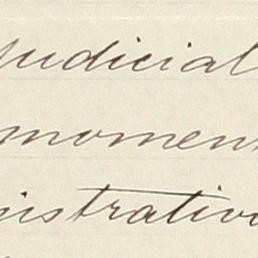 judicial
momen
nistrativ